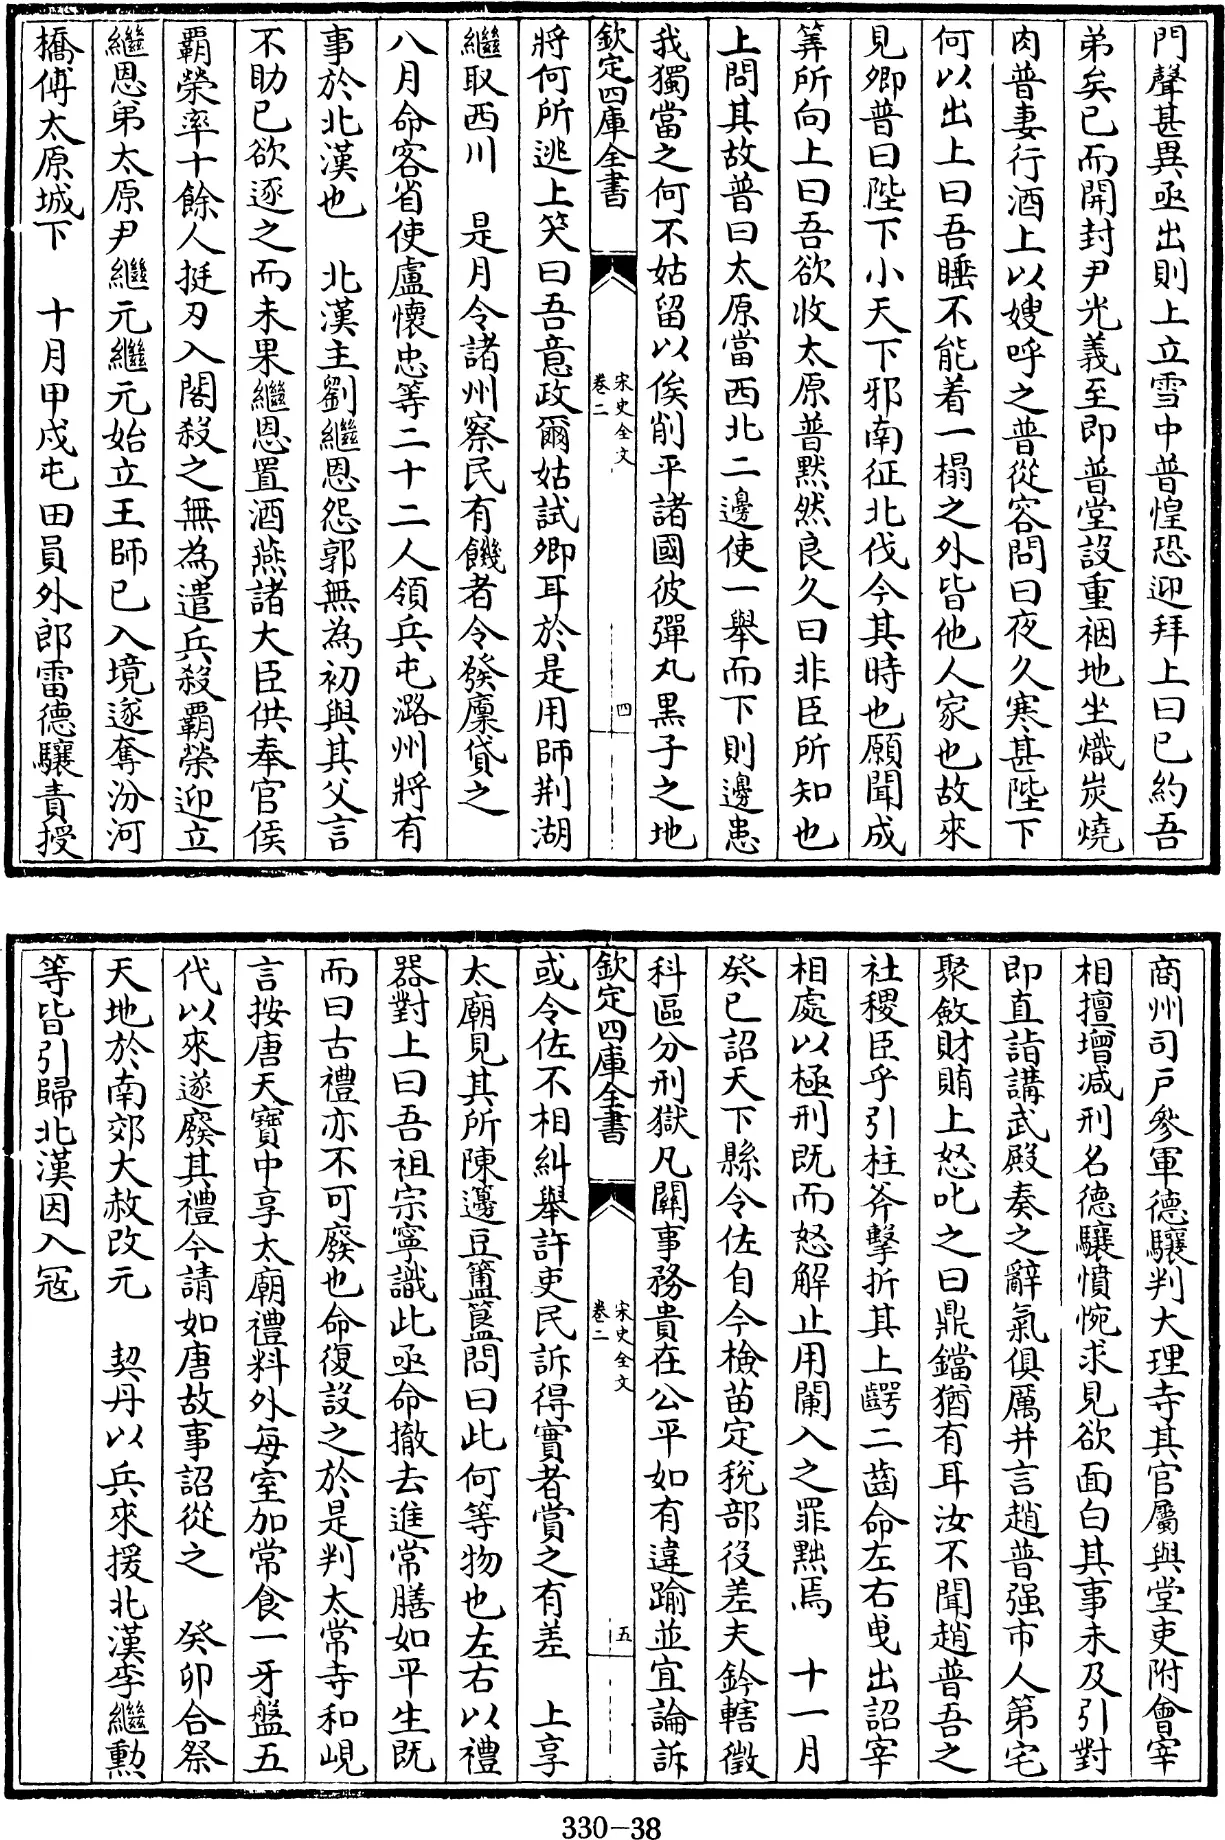 門聲甚異亟出則上立雪中普惶恐迎拜上曰已約吾
弟矣已而開封尹光義至即普堂設重裀地坐熾炭燒
肉普妻行酒上以嫂呼之普從容問曰夜久寒甚陛下
何以出上曰吾睡不能着一榻之外皆他人家也故來
見卿普曰陛下小天下邪南征北伐今其時也願聞成
筭所向上曰吾欲收太原普黙然良久曰非臣所知也
上問其故普曰太原當西北二邊使一舉而下則邊患
我獨當之何不姑留以俟削平諸國彼彈丸黒子之地
欽定四庫全書 宋史全文 卷二 四
將何所逃上笑曰吾意政爾姑試卿耳於是用師荆湖
繼取西川 是月令諸州察民有饑者令發廩貸之
八月命客省使盧懷忠等二十二人領兵屯潞州將有
事於北漢也 北漢主劉繼恩怨郭無為初與其父言
不助已欲逐之而未果繼恩置酒燕諸大臣供奉官侯
霸榮率十餘人挺刃入閣殺之無為遣兵殺霸榮迎立
繼恩弟太原尹繼元繼元始立王師已入境遂奪汾河
橋傅太原城下 十月甲戍屯田員外郎雷德驤責授
商州司戸參軍德驤判大理寺其官屬與堂吏附會宰
相擅增减刑名德驤憤惋求見欲面白其事未及引對
即直詣講武殿奏之辭氣俱厲并言趙普强市人第宅
聚斂財賄上怒叱之曰鼎鐺猶有耳汝不聞趙普吾之
社稷臣乎引柱斧擊折其上齶二齒命左右曵出詔宰
相處以極刑既而怒解止用闌入之罪黜焉 十一月
癸巳詔天下縣令佐自今檢苗定稅部役差夫鈐轄徵
科區分刑獄凡關事務貴在公平如有違踰並宜論訴
欽定四庫全書 宋史全文 卷二 五
或令佐不相糾舉許吏民訴得實者賞之有差 上享
太廟見其所陳籩豆簠簋問曰此何等物也左右以禮
器對上曰吾祖宗寧識此亟命撤去進常膳如平生既
而曰古禮亦不可廢也命復設之於是判太常寺和峴
言按唐天寶中享太廟禮料外每室加常食一牙盤五
代以來遂廢其禮今請如唐故事詔從之 癸卯合祭
天地於南郊大赦改元 契丹以兵來援北漢李繼勲
等皆引歸北漢因入冦
330-38